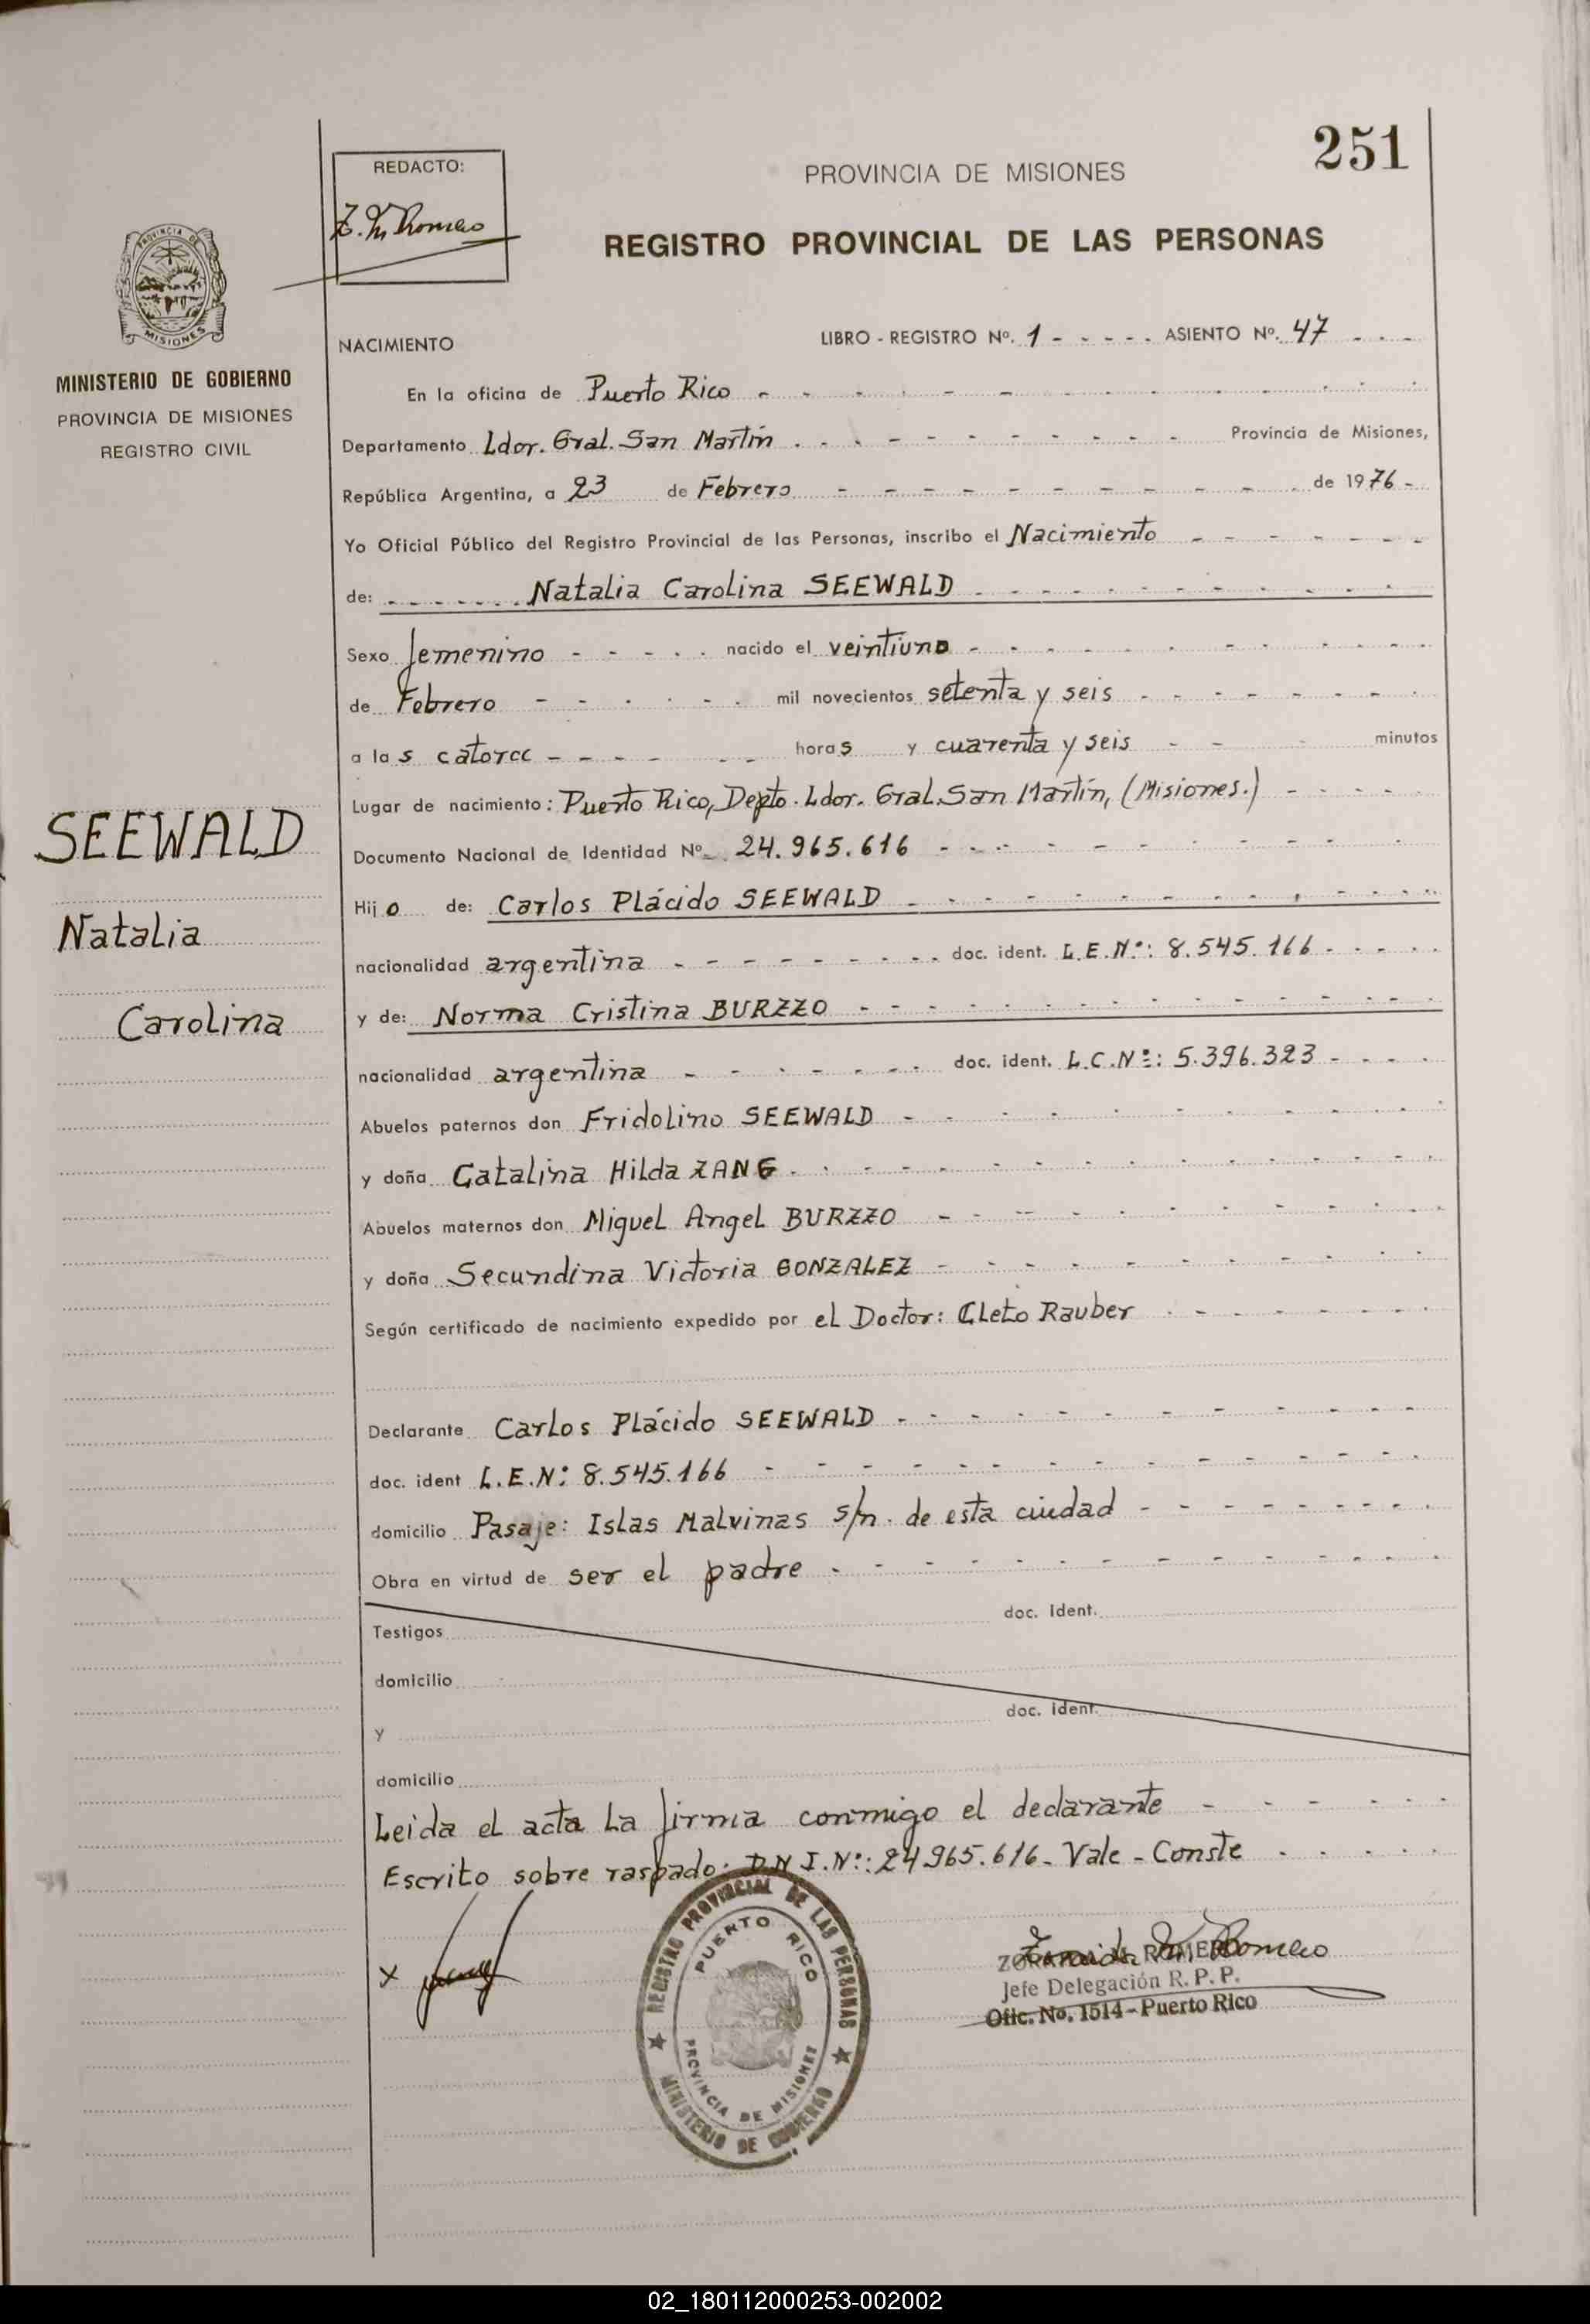 251
REDACTO:
Z. M. Romero
PROVINCIA DE MISIONES
REGISTRO PROVINCIAL DE LAS PERSONAS
PROVINCIA DE
MISIONES
MINISTERIO DE GOBIERNO
PROVINCIA DE MISIONES
REGISTRO CIVIL
NACIMIENTO LIBRO - REGISTRO Nº. 1 - - - - - ASIENTO Nº. 47 - - -
En la oficina de Puerto Rico
Departamento Ldor. Gral. San Martín Provincia de Misiones,
República Argentina, a 23 de Febrero de 1976 -
Yo Oficial Público del Registro Provincial de las Personas, inscribo el Nacimiento
de: Natalia Carolina SEEWALD
Sexo femenino nacido el veintiuno
de Febrero mil novecientos setenta y seis
a las catorce horas y cuarenta y seis minutos
Lugar de nacimiento: Puerto Rico, Depto. Ldor. Gral. San Martín, (Misiones.)
Documento Nacional de Identidad Nº 24.965.616
Hijo de: Carlos Plácido SEEWALD
nacionalidad argentina doc. ident. L.E.Nº: 8.545.166
y de: Norma Cristina BURZZO
nacionalidad argentina doc. ident. L.C.Nº: 5.396.323
Abuelos paternos don Fridolino SEEWALD
y doña Catalina Hilda ZANG
Abuelos maternos don Miguel Angel BURZZO
y doña Secundina Victoria GONZALEZ
Según certificado de nacimiento expedido por el Doctor: Cleto Rauber
Declarante Carlos Plácido SEEWALD
doc. ident L.E.N: 8.545.166
domicilio Pasaje: Islas Malvinas s/n. de esta ciudad
Obra en virtud de ser el padre
doc. ident.
Testigos
domicilio
doc. ident.
y
domicilio
Leida el acta la firma conmigo el declarante
Escrito sobre raspado: D.N.I.Nº: 24.965.616 - Vale - Conste
SEEWALD
Natalia
Carolina
x
REGISTRO PROVINCIAL DE LAS PERSONAS
PUERTO RICO
PROVINCIA DE MISIONES
MINISTERIO DE GOBIERNO
Zoraida M. Romero
ZORAIDA M. ROMERO
Jefe Delegación R. P. P.
Ofic. No. 1514 - Puerto Rico
02_180112000253-002002